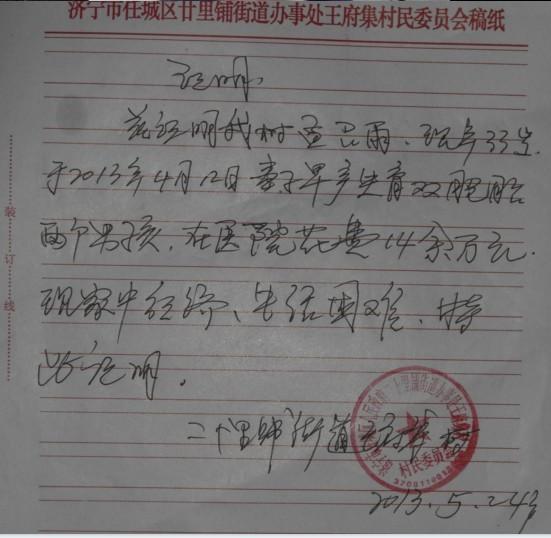 济宁市任城区廿里铺街道办事处王府集村民委员会稿纸
证明
兹证明我村孟召雨、现年33岁.
于2013年4月12日妻子早产生育双胞胎
两个男孩，在医院花费14余万元.
现家中经济、生活困难、特
此证明.
二十里铺街道王府集村
村民委员会
2013.5.24号
装
订
线